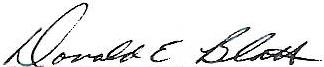 Donald E Blatt